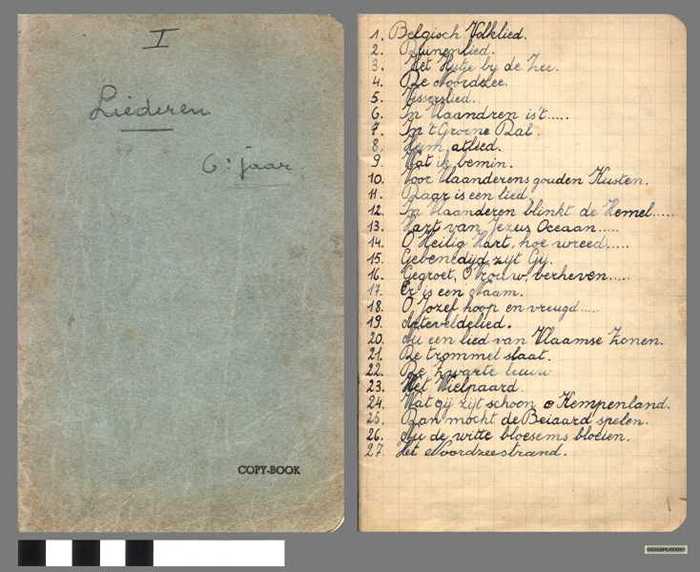 I
Liederen
6e jaar
COPY-BOOK
1. Belgisch Volklied.
2. Duinenlied.
3. Het Hutje bij de Zee.
4. De Noordzee.
5. Visserslied.
6. In Vlaandren is't.....
7. In 't Groene Dal.
8. Heimatlied.
9. Wat ik bemin.
10. Voor Vlaanderens gouden Kusten.
11. Daar is een lied
12. In Vlaanderen blinkt de Hemel.....
13. Hart van Jezus Oceaan.....
14. O Heilig Hart, hoe wreed.....
15. Gebenedijd zijt Gij.
16. Gegroet, O Vrouw, verheven.....
17. Er is een Naam.
18. O Jozef hoop en vreugd.....
19. Arteveldelied.
20. Nu een lied van Vlaamse Zonen.
21. De trommel slaat.
22. De zwarte leeuw
23. Het Wielpaard
24. Wat gij zijt schoon o Kempenland.
25. Dan mocht de Beiaard spelen.
26. Nu de witte bloesems bloeien.
27. Het Noordzeestrand.